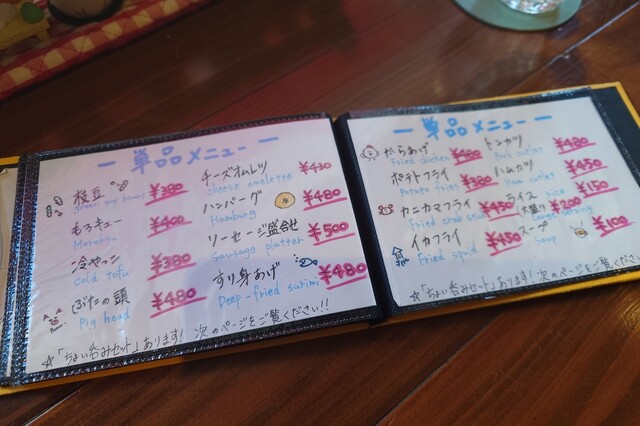 — 単品メニュー —
枝豆
green soy beans ¥380
もろキュー
Morokyu ¥400
冷やっこ
Cold tofu ¥380
ぶたの頭
Pig head ¥480
チーズオムレツ
cheese omelette ¥430
ハンバーグ
Hamburg ¥480
ソーセージ盛合せ
Sausage platter ¥500
すり身あげ
Deep-fried surimi ¥480
☆「ちょい呑みセット」あります! 次のページをご覧ください!!
— 単品メニュー —
からあげ
Fried chicken ¥480
ポテトフライ
Potato fries ¥380
カニカマフライ
Fried crab stick ¥450
イカフライ
Fried squid ¥450
トンカツ
Pork cutlet ¥480
ハムカツ
Ham cutlet ¥450
ライス
rice ¥150
大盛り ¥200
Large serving
スープ
Soup ¥100
☆「ちょい呑みセット」あります! 次のページをご覧ください